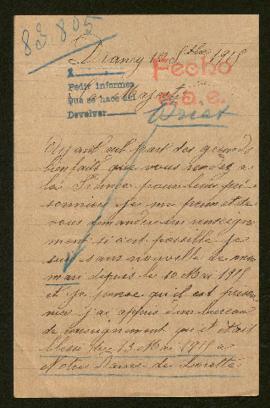 83.805
Drancy le 8bre 1915
Fecho
1
Pedir informes
Que se hace del
Devolver
a.s.e.
Majesté
Ayant eut part des grands
bienfaits que vous rendez a
la France pour leurs pri
sonniers je me permet de
vous demander un renseign
ment si c'est possible je
suis sans nouvelle de mon
mari depuis le 10 Mai 1915
et je pense qu'il est prison
nier j'ai appris d'un bureau
de renseignement qu'il était
blessé le 13 Mai 1915 a
Notre Dame de Lorette